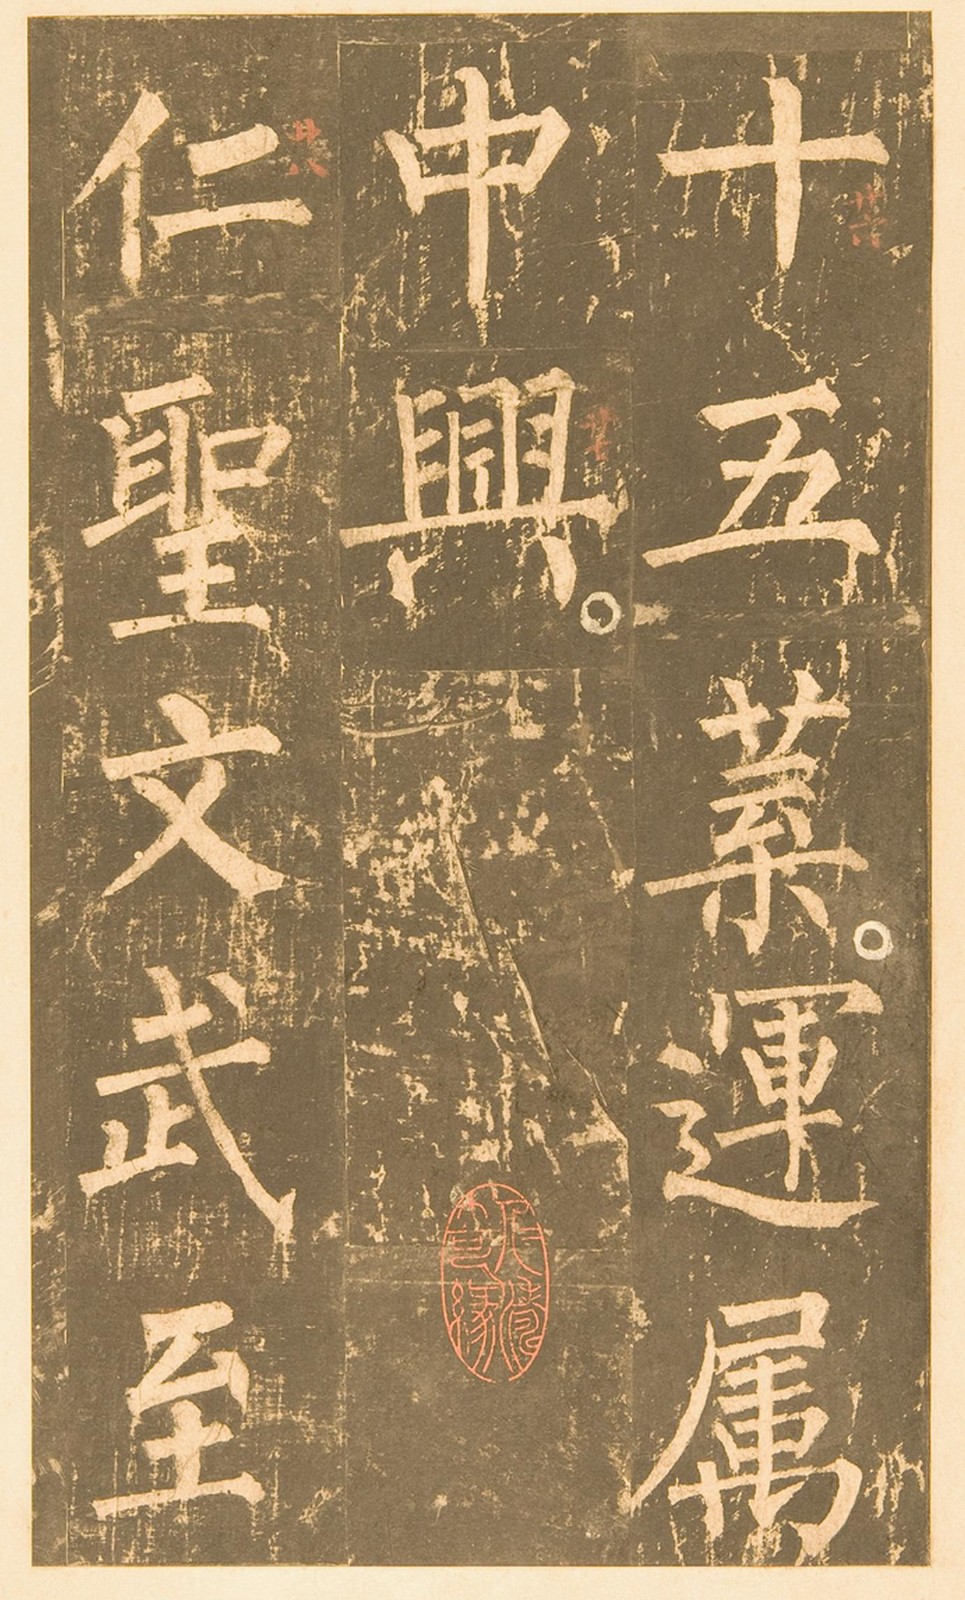 十五葉。運属
中興。
仁聖文武至